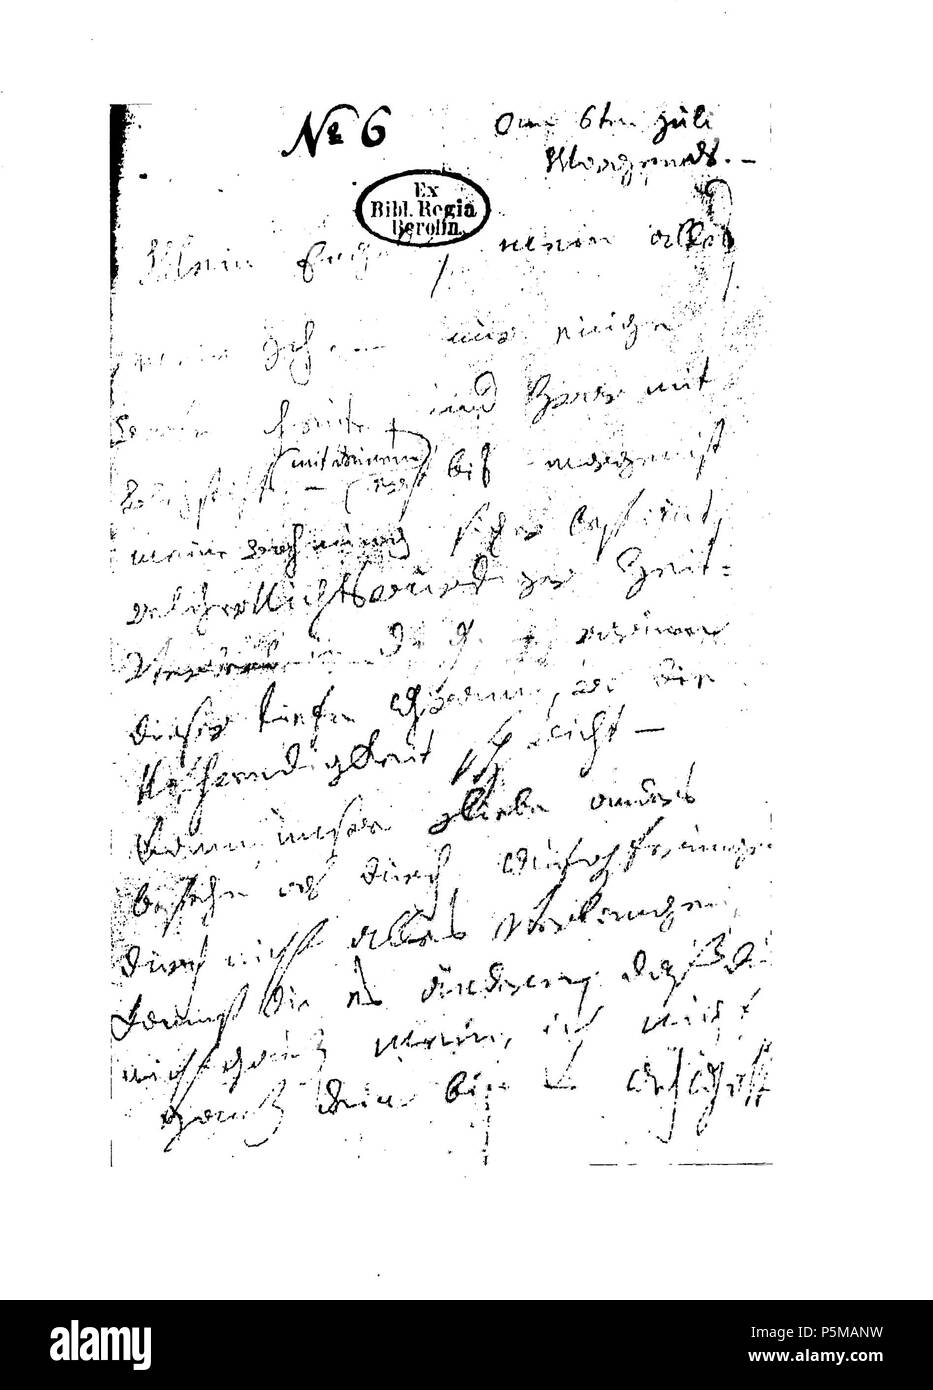 № 6
am 6ten Juli
Morgends. –
Ex
Bibl. Regia
Berolin.
Mein Engel, mein alles
mein Ich – nur einige
Worte heute, und zwar mit
Bleystift – (mit deinem) erst bis morgen ist
meine Wohnung sicher bestimt,
welcher Nichtswürdiger Zeit-
verderb in d. g. – warum
dieser tiefe Gram, wo die
Nothwendigkeit spricht –
Kann unsre Liebe anders
bestehn als durch Aufopferungen,
durch nicht alles verlangen,
kannst du es ändern, daß du
nicht ganz mein, ich nicht
ganz dein bin – Ach Gott
alamy
Image ID: P5MANW
www.alamy.com